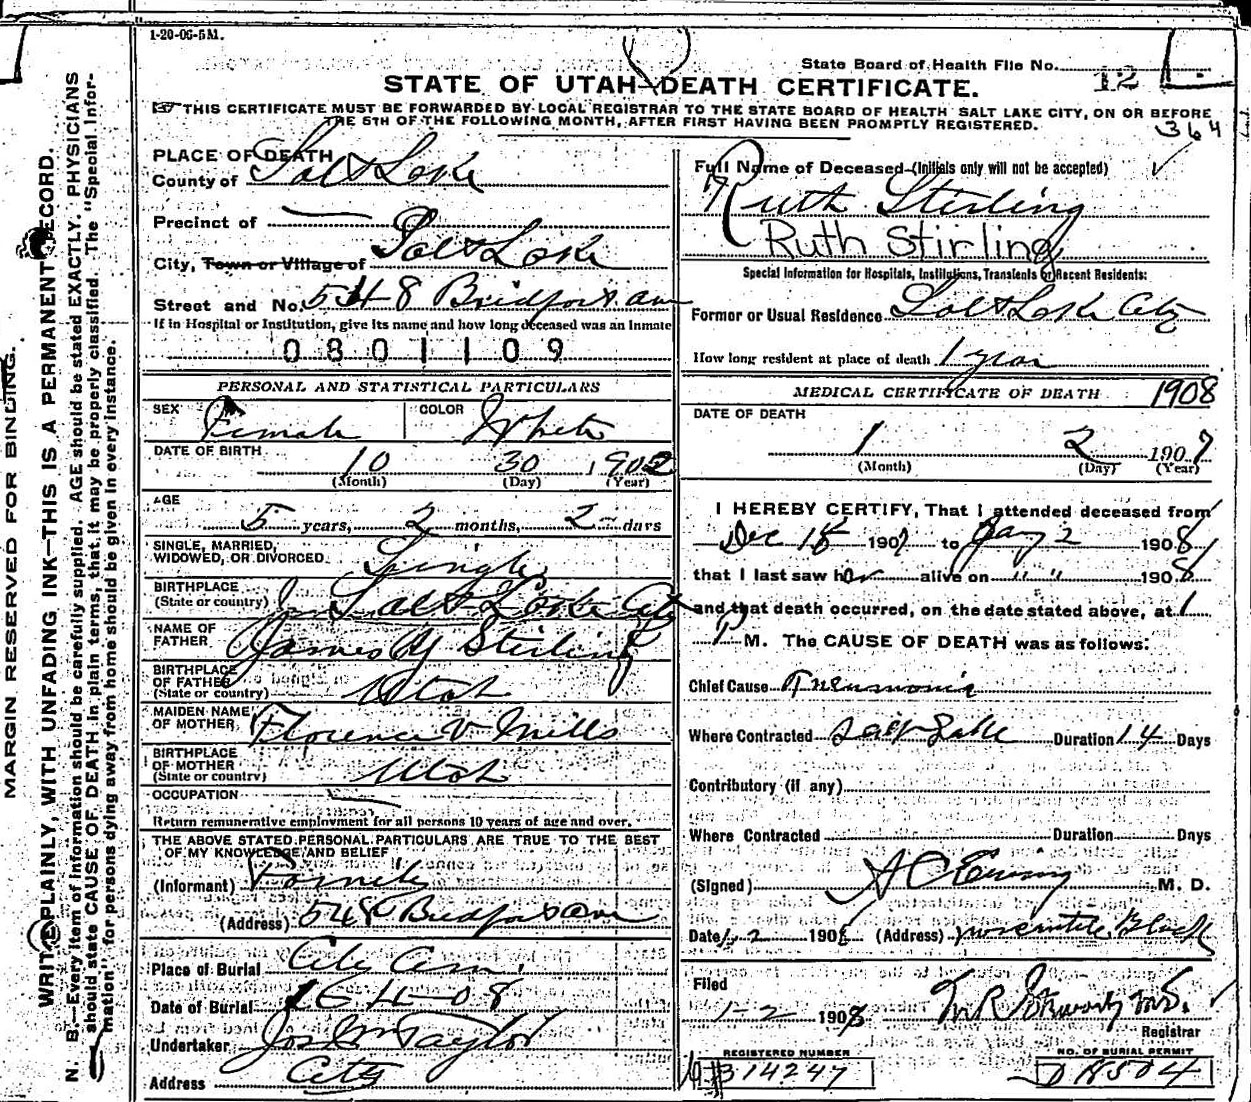 1-20-06-5M.
State Board of Health File No. 12
STATE OF UTAH—DEATH CERTIFICATE.
THIS CERTIFICATE MUST BE FORWARDED BY LOCAL REGISTRAR TO THE STATE BOARD OF HEALTH SALT LAKE CITY, ON OR BEFORE
THE 5TH OF THE FOLLOWING MONTH, AFTER FIRST HAVING BEEN PROMPTLY REGISTERED.
364
MARGIN RESERVED FOR BINDING.
WRITE PLAINLY, WITH UNFADING INK—THIS IS A PERMANENT RECORD.
N. B.—Every item of information should be carefully supplied. AGE should be stated EXACTLY. PHYSICIANS
should state CAUSE OF DEATH in plain terms, that it may be properly classified. The "Special Infor-
mation" for persons dying away from home should be given in every instance.
PLACE OF DEATH
County of Salt Lake
Precinct of
City, Town or Village of Salt Lake
Street and No. 548 Bridford ave
If in Hospital or Institution, give its name and how long deceased was an inmate
0801109
PERSONAL AND STATISTICAL PARTICULARS
SEX Female COLOR White
DATE OF BIRTH 10 30 1902
(Month) (Day) (Year)
AGE
5 years, 2 months, 2 days
SINGLE, MARRIED,
WIDOWED, OR DIVORCED Single
BIRTHPLACE
(State or country) Salt Lake City
NAME OF
FATHER James M Stirling
BIRTHPLACE
OF FATHER
(State or country) Utah
MAIDEN NAME
OF MOTHER Florence V Mills
BIRTHPLACE
OF MOTHER
(State or country) Utah
OCCUPATION
Return remunerative employment for all persons 10 years of age and over.
THE ABOVE STATED PERSONAL PARTICULARS ARE TRUE TO THE BEST
OF MY KNOWLEDGE AND BELIEF
(Informant) Family
(Address) 548 Bridford ave
Place of Burial City Cem.
Date of Burial 1-5-08
Undertaker Jos Wm Taylor
Address City
Full Name of Deceased (Initials only will not be accepted)
Ruth Stirling
Ruth Stirling
Special Information for Hospitals, Institutions, Transients or Recent Residents:
Former or Usual Residence Salt Lake City
How long resident at place of death 1 year
MEDICAL CERTIFICATE OF DEATH 1908
DATE OF DEATH
1 2 1907
(Month) (Day) (Year)
I HEREBY CERTIFY, That I attended deceased from
Dec 18 1907 to Jany 2 1908
that I last saw her alive on " " 1908
and that death occurred, on the date stated above, at 1
P M. The CAUSE OF DEATH was as follows:
Chief Cause Pneumonia
Where Contracted Salt Lake Duration 14 Days
Contributory (if any)
Where Contracted Duration Days
(Signed) A C Ewing M. D.
Date 1-2 1908 (Address) Mercantile Block
Filed
1-2 1908 M.R. Stewart M.D.
Registrar
REGISTERED NUMBER
314247
NO. OF BURIAL PERMIT
D 8504